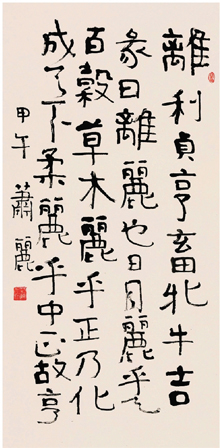 離利貞亨畜牝牛吉
彖曰離麗也日月麗乎天
百穀草木麗乎正乃化
成天下柔麗乎中正故亨
甲午 蕭麗